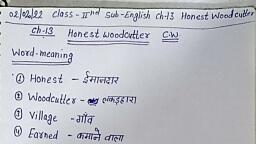 02/02/22 Class - IInd Sub-English Ch-13 Honest Woodcutter
Ch-13 Honest Woodcutter C.W
Word-meaning
① Honest - ईमानदार
② Woodcutter - लकड़हारा
③ Village - गाँव
④ Earned - कमाने वाला